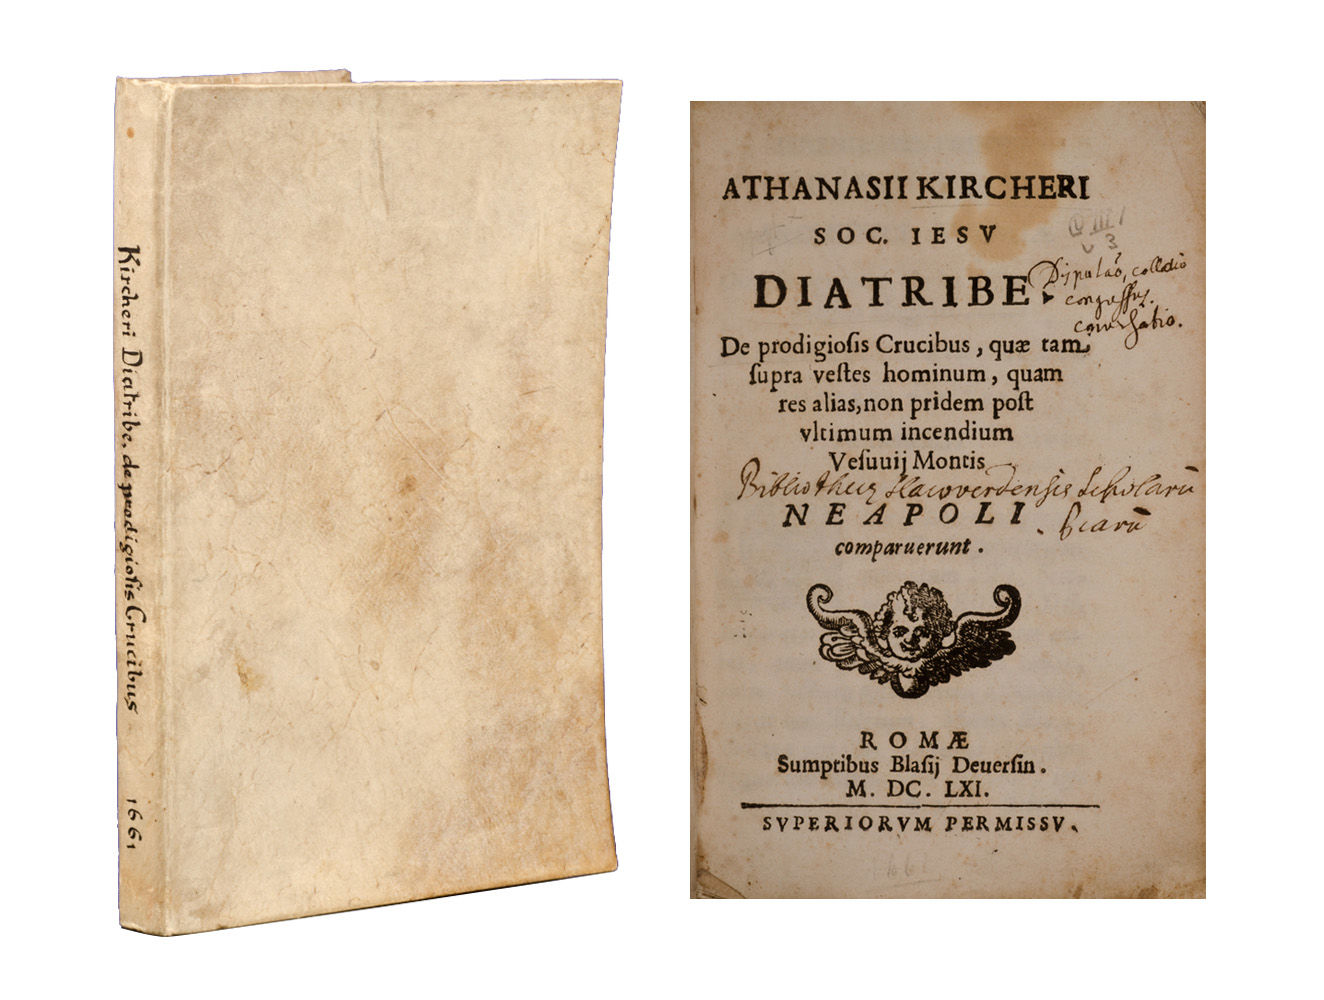 Kircheri Diatribe, de prodigiosis Crucibus 1661
ATHANASII KIRCHERI
SOC. IESV
DIATRIBE.
Disputaõ, collatio
congressus.
conversatio.
De prodigioſis Crucibus, quæ tam
ſupra veſtes hominum, quam
res alias, non pridem poſt
vltimum incendium
Veſuuij Montis
Bibliothecæ Slacoverdensis Scholarũ
Piarũ
NEAPOLI
comparuerunt.
ROMÆ
Sumptibus Blaſij Deuerſin.
M. DC. LXI.
SVPERIORVM PERMISSV.
1661